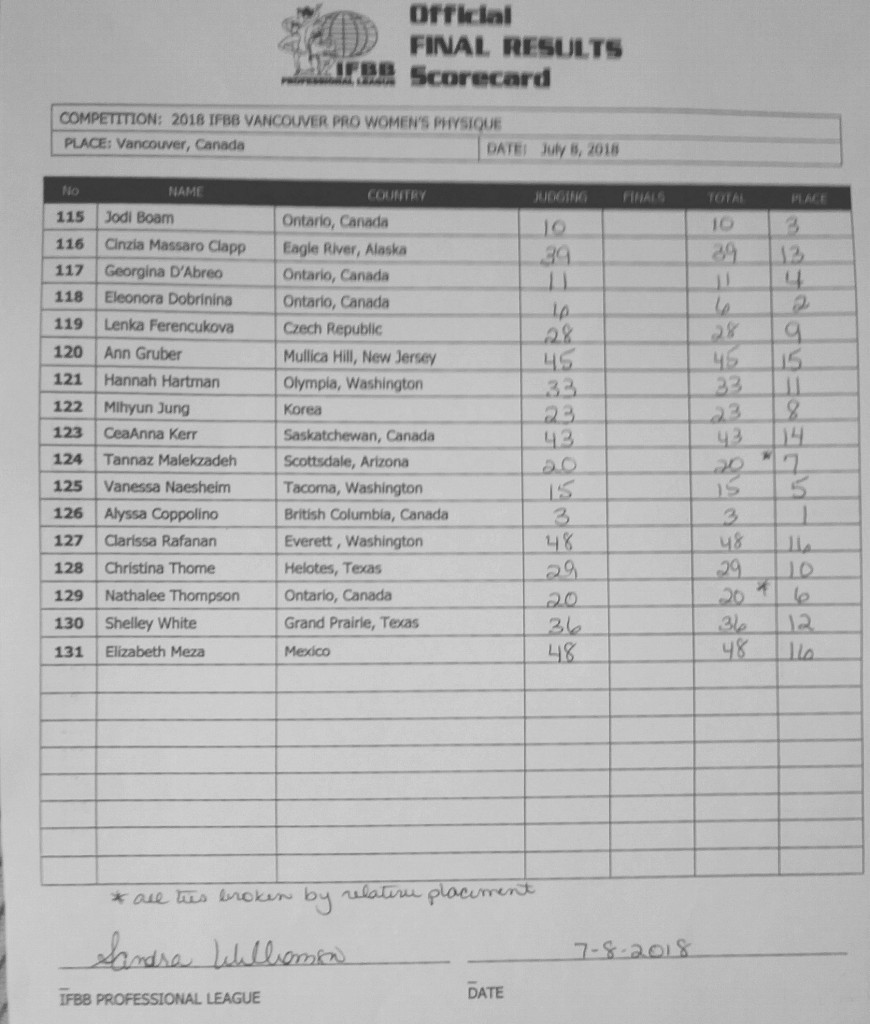 Official
FINAL RESULTS
Scorecard
IFBB
PROFESSIONAL LEAGUE
COMPETITION: 2018 IFBB VANCOUVER PRO WOMEN'S PHYSIQUE
PLACE: Vancouver, Canada DATE: July 8, 2018
No NAME COUNTRY JUDGING FINALS TOTAL PLACE
115 Jodi Boam Ontario, Canada 10 10 3
116 Cinzia Massaro Clapp Eagle River, Alaska 39 39 13
117 Georgina D'Abreo Ontario, Canada 11 11 4
118 Eleonora Dobrinina Ontario, Canada 6 6 2
119 Lenka Ferencukova Czech Republic 28 28 9
120 Ann Gruber Mullica Hill, New Jersey 45 45 15
121 Hannah Hartman Olympia, Washington 33 33 11
122 Mihyun Jung Korea 23 23 8
123 CeaAnna Kerr Saskatchewan, Canada 43 43 14
124 Tannaz Malekzadeh Scottsdale, Arizona 20 20 * 7
125 Vanessa Naesheim Tacoma, Washington 15 15 5
126 Alyssa Coppolino British Columbia, Canada 3 3 1
127 Clarissa Rafanan Everett , Washington 48 48 16
128 Christina Thome Helotes, Texas 29 29 10
129 Nathalee Thompson Ontario, Canada 20 20 * 6
130 Shelley White Grand Prairie, Texas 36 36 12
131 Elizabeth Meza Mexico 48 48 16
* all ties broken by relative placement
Sandra Williamson 7-8-2018
IFBB PROFESSIONAL LEAGUE DATE